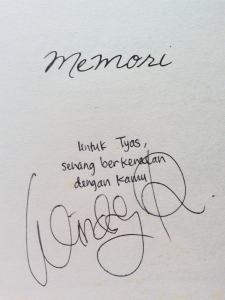 Memori
Untuk Tyas,
senang berkenalan
dengan kamu